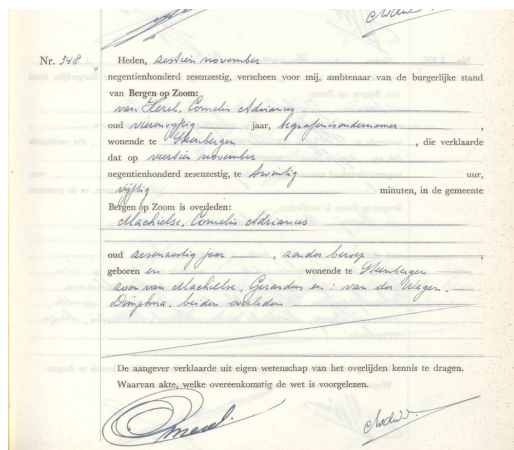 Nr. 348
Heden, zestien november
negentienhonderd zesenzestig, verscheen voor mij, ambtenaar van de burgerlijke stand
van Bergen op Zoom:
van Herel, Cornelis Adrianus
oud vierenvijftig jaar, begrafenisondernemer,
wonende te Steenbergen, die verklaarde
dat op veertien november
negentienhonderd zesenzestig, te twintig uur,
vijftig minuten, in de gemeente
Bergen op Zoom is overleden:
Machielse, Cornelis Adrianus
oud zesenzestig jaar, zonder beroep,
geboren en wonende te Steenbergen
zoon van Machielse, Gerardus en: van der Wegen,
Dimphna, beiden overleden
De aangever verklaarde uit eigen wetenschap van het overlijden kennis te dragen.
Waarvan akte, welke overeenkomstig de wet is voorgelezen.